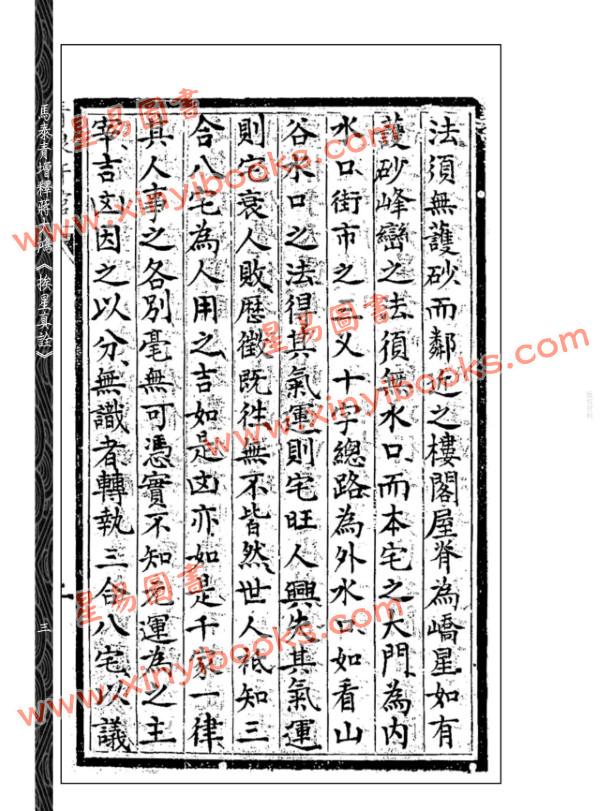 法須無護砂而鄰近之樓閣屋脊為嶠星如有
護砂峰巒之法須無水口而本宅之大門為內
水口街市之三叉十字總路為外水口如看山
谷水口之法得其氣運則宅旺人興失其氣運
則宅衰人敗歷徵既往無不皆然世人祗知三
合八宅為人用之吉如是凶亦如是千家一律
其人事之各別毫無可憑實不知元運為之主
宰吉凶因之以分無識者轉執三合八宅以議
馬泰青增釋蔣大鴻《挨星真詮》
三
星易圖書
www.xinyibooks.com
星易圖書
www.xinyibooks.com
星易圖書
www.xinyibooks.com